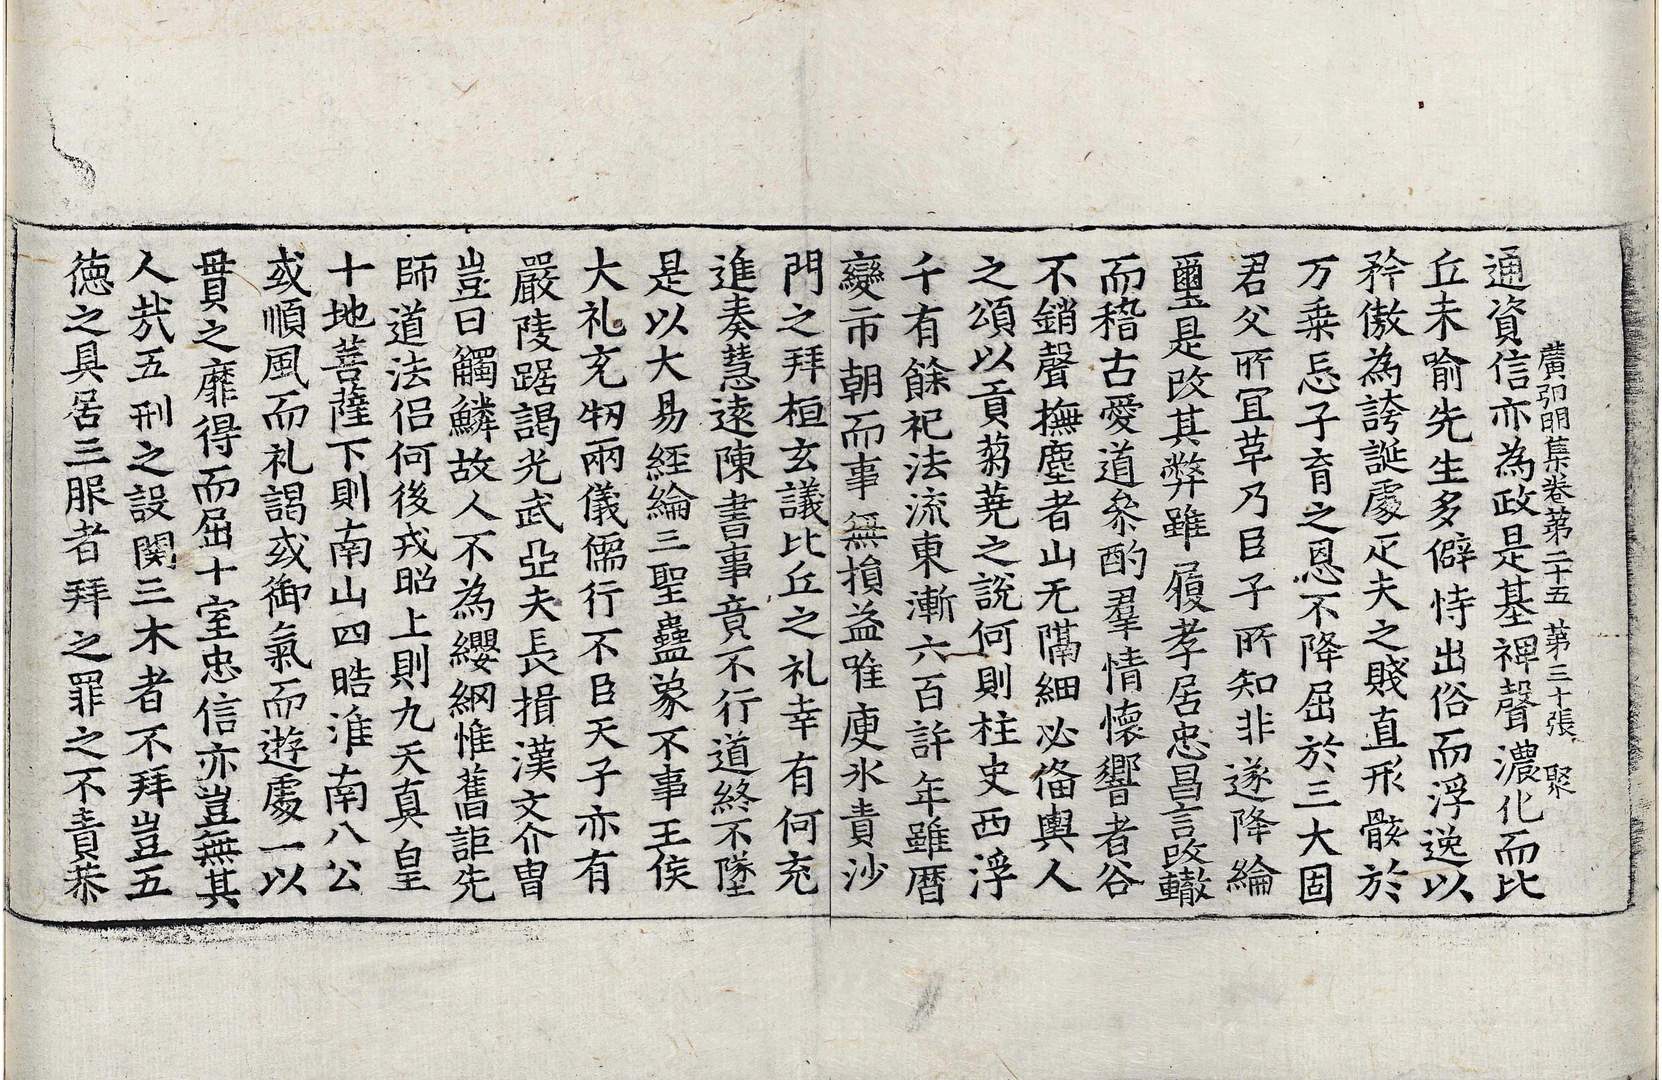 廣弘明集卷第二十五 第三十張 聚
通資信亦為政是基禆聲濃化而比
丘未喻先生多僻恃出俗而浮逸以
矜傲為誇誕處疋夫之賤直形骸於
万乗忘子育之恩不降屈於三大固
君父所冝草乃臣子所知非遂降綸
璽是改其弊雖履孝居忠昌言改轍
而稽古愛道叅酌羣情懷響者谷
不銷聲撫塵者山无隔細必俻輿人
之頌以貢蒭蕘之說何則柱史西浮
千有餘祀法流東漸六百許年雖曆
變市朝而事無損益唯庾氷責沙
門之拜桓玄議比丘之礼幸有何充
進奏慧遠陳書事竟不行道終不墜
是以大易経綸三聖蠱象不事王侯
大礼充牣兩儀儒行不臣天子亦有
嚴陵踞謁光武亞夫長揖漢文介胄
豈曰觸鱗故人不為纓網惟舊詎先
師道法侶何後戎昭上則九天真皇
十地菩薩下則南山四晧淮南八公
或順風而礼謁或御氣而遊處一以
貫之靡得而屈十室忠信亦豈無其
人㢤五刑之設関三木者不拜豈五
德之具居三服者拜之罪之不責恭